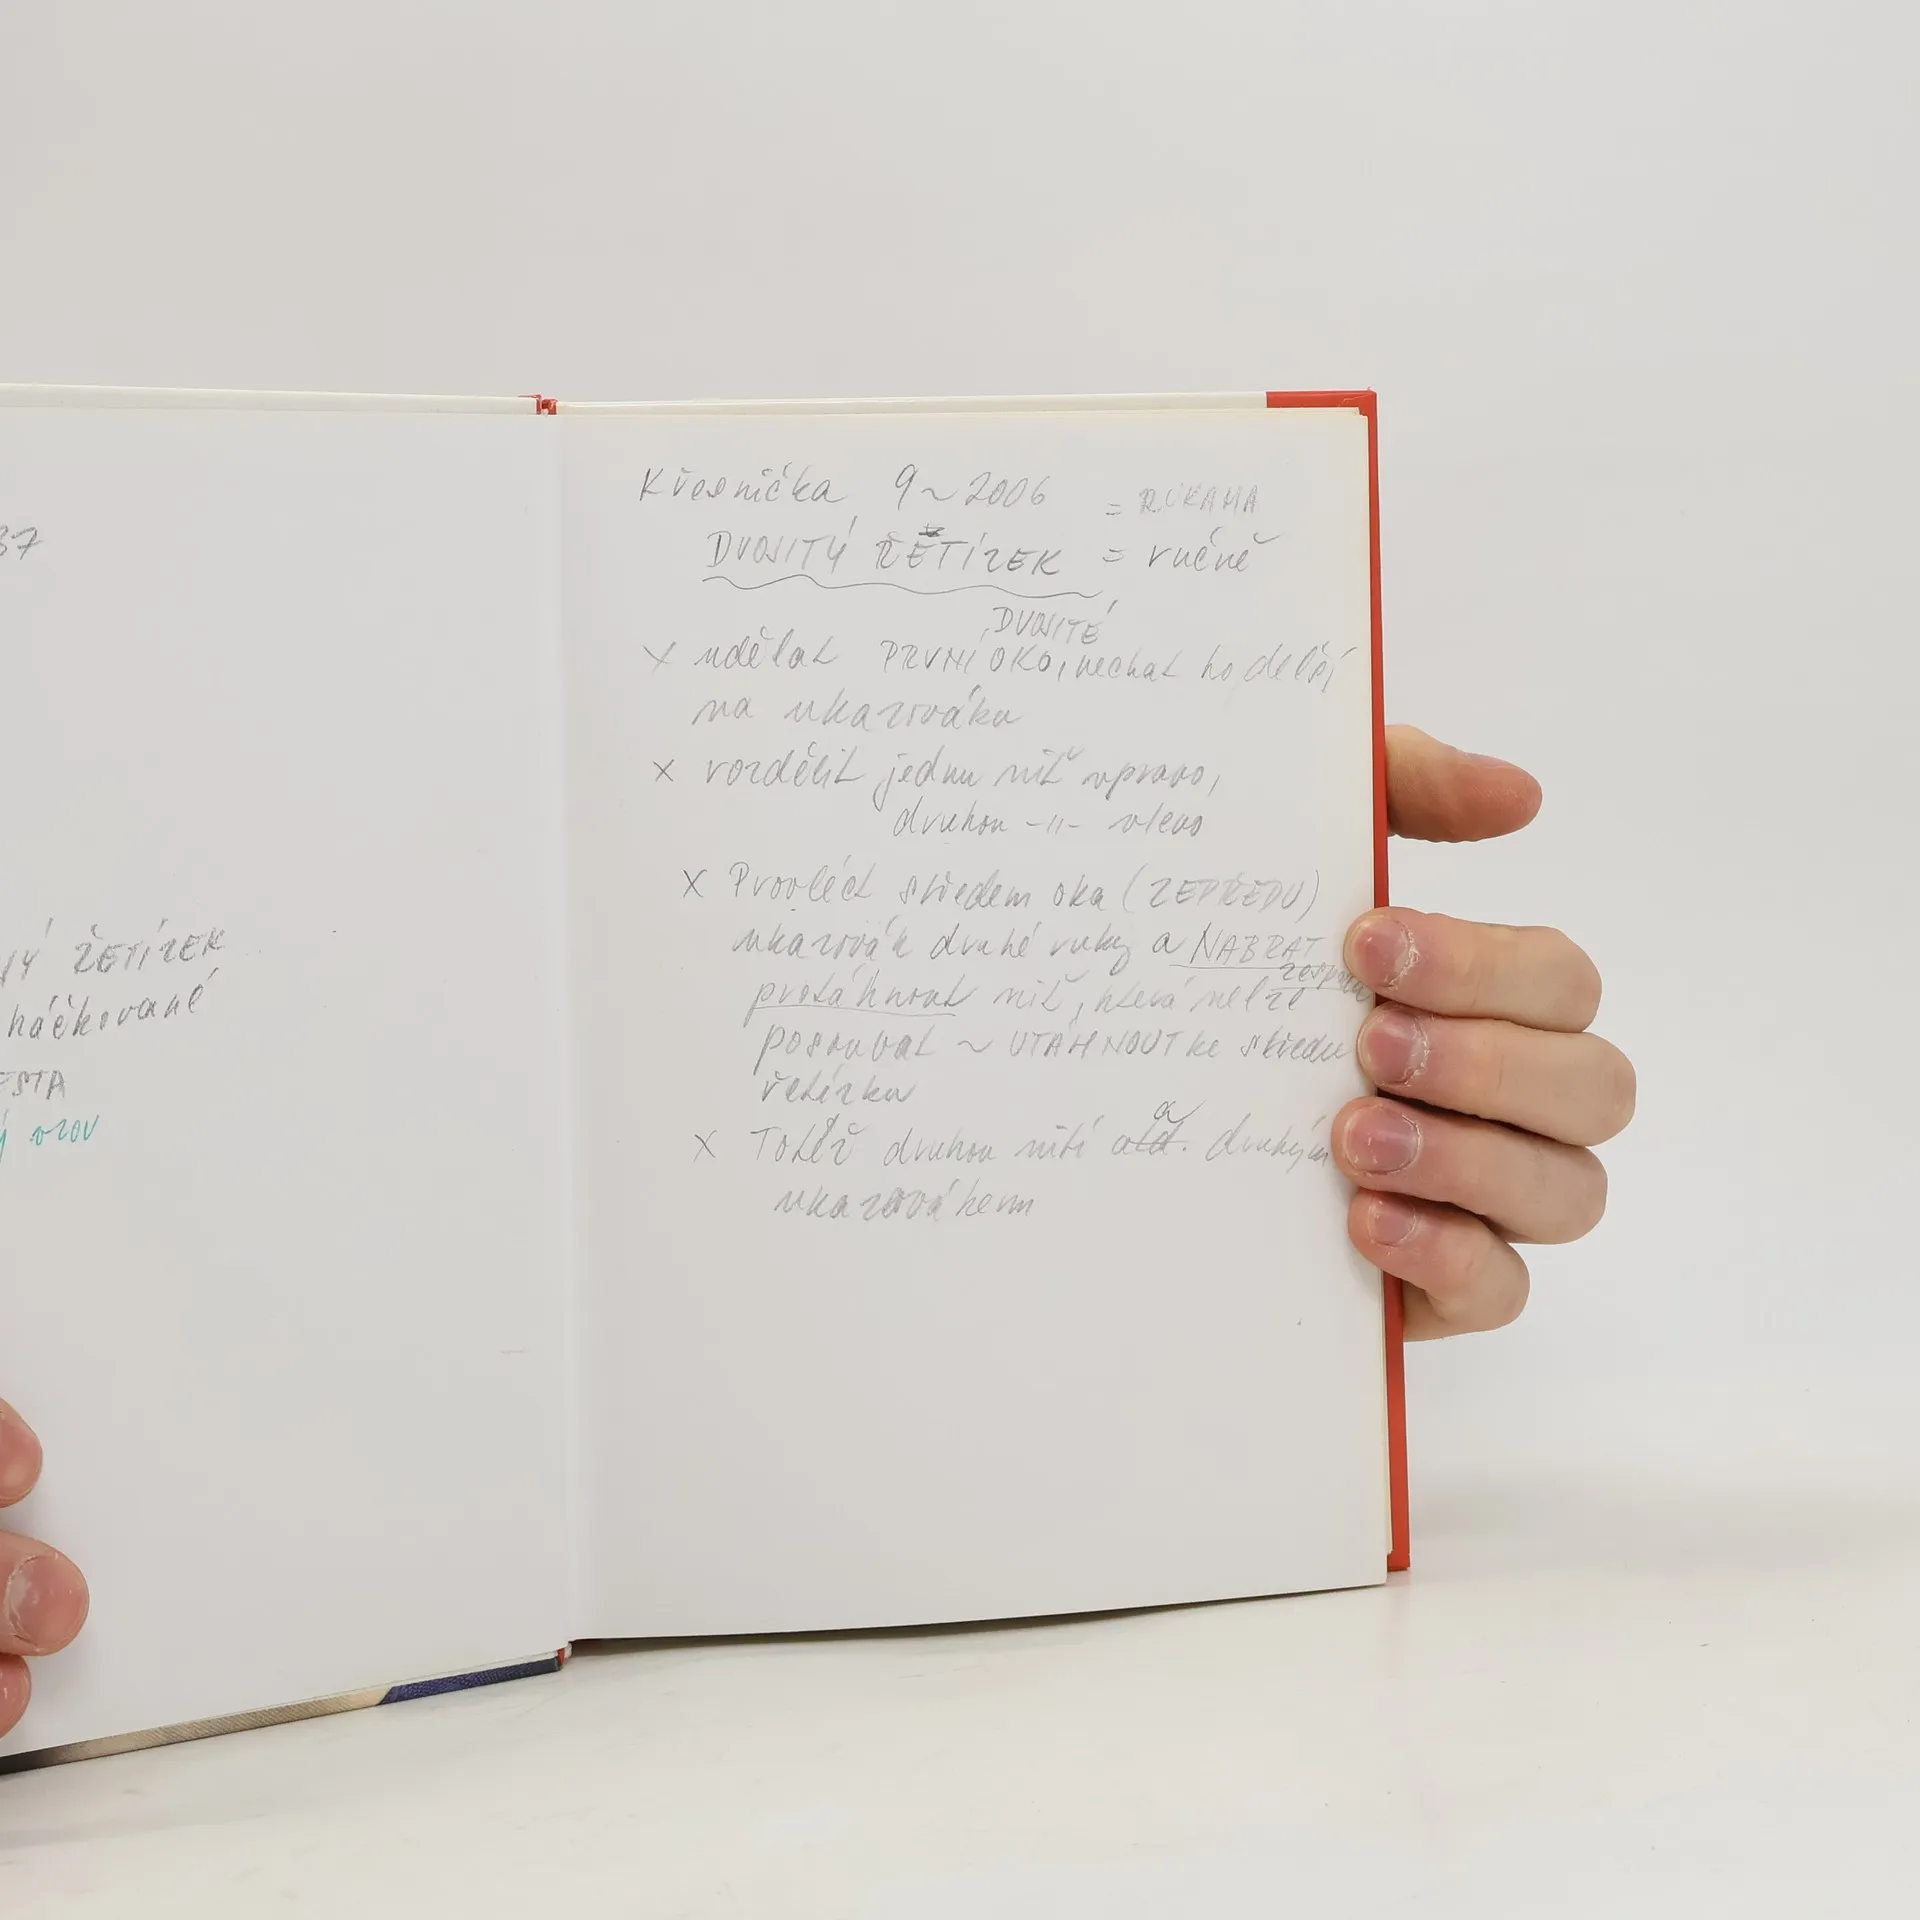 37
Ý ŽETÍZEK
háčkované
ESTA
ý vzov
Křesnička 9~2006 = RUKAMA
DVOJITÝ ŘETÍZEK = ručně
DVOJITÉ
X udělat PRVNÍ OKO, nechat ho delší
na ukazováku
X rozdělit jednu niť vpravo,
druhou -11- vlevo
X Provléct středem oka (ZEPŘEDU)
ukazovák druhé ruky a NABRAT
zespodu
protáhnout niť, která nelze
posouvat ~ UTÁHNOUT ke středu
řetízku
a
X Totéž druhou nití druhým
ukazovákem